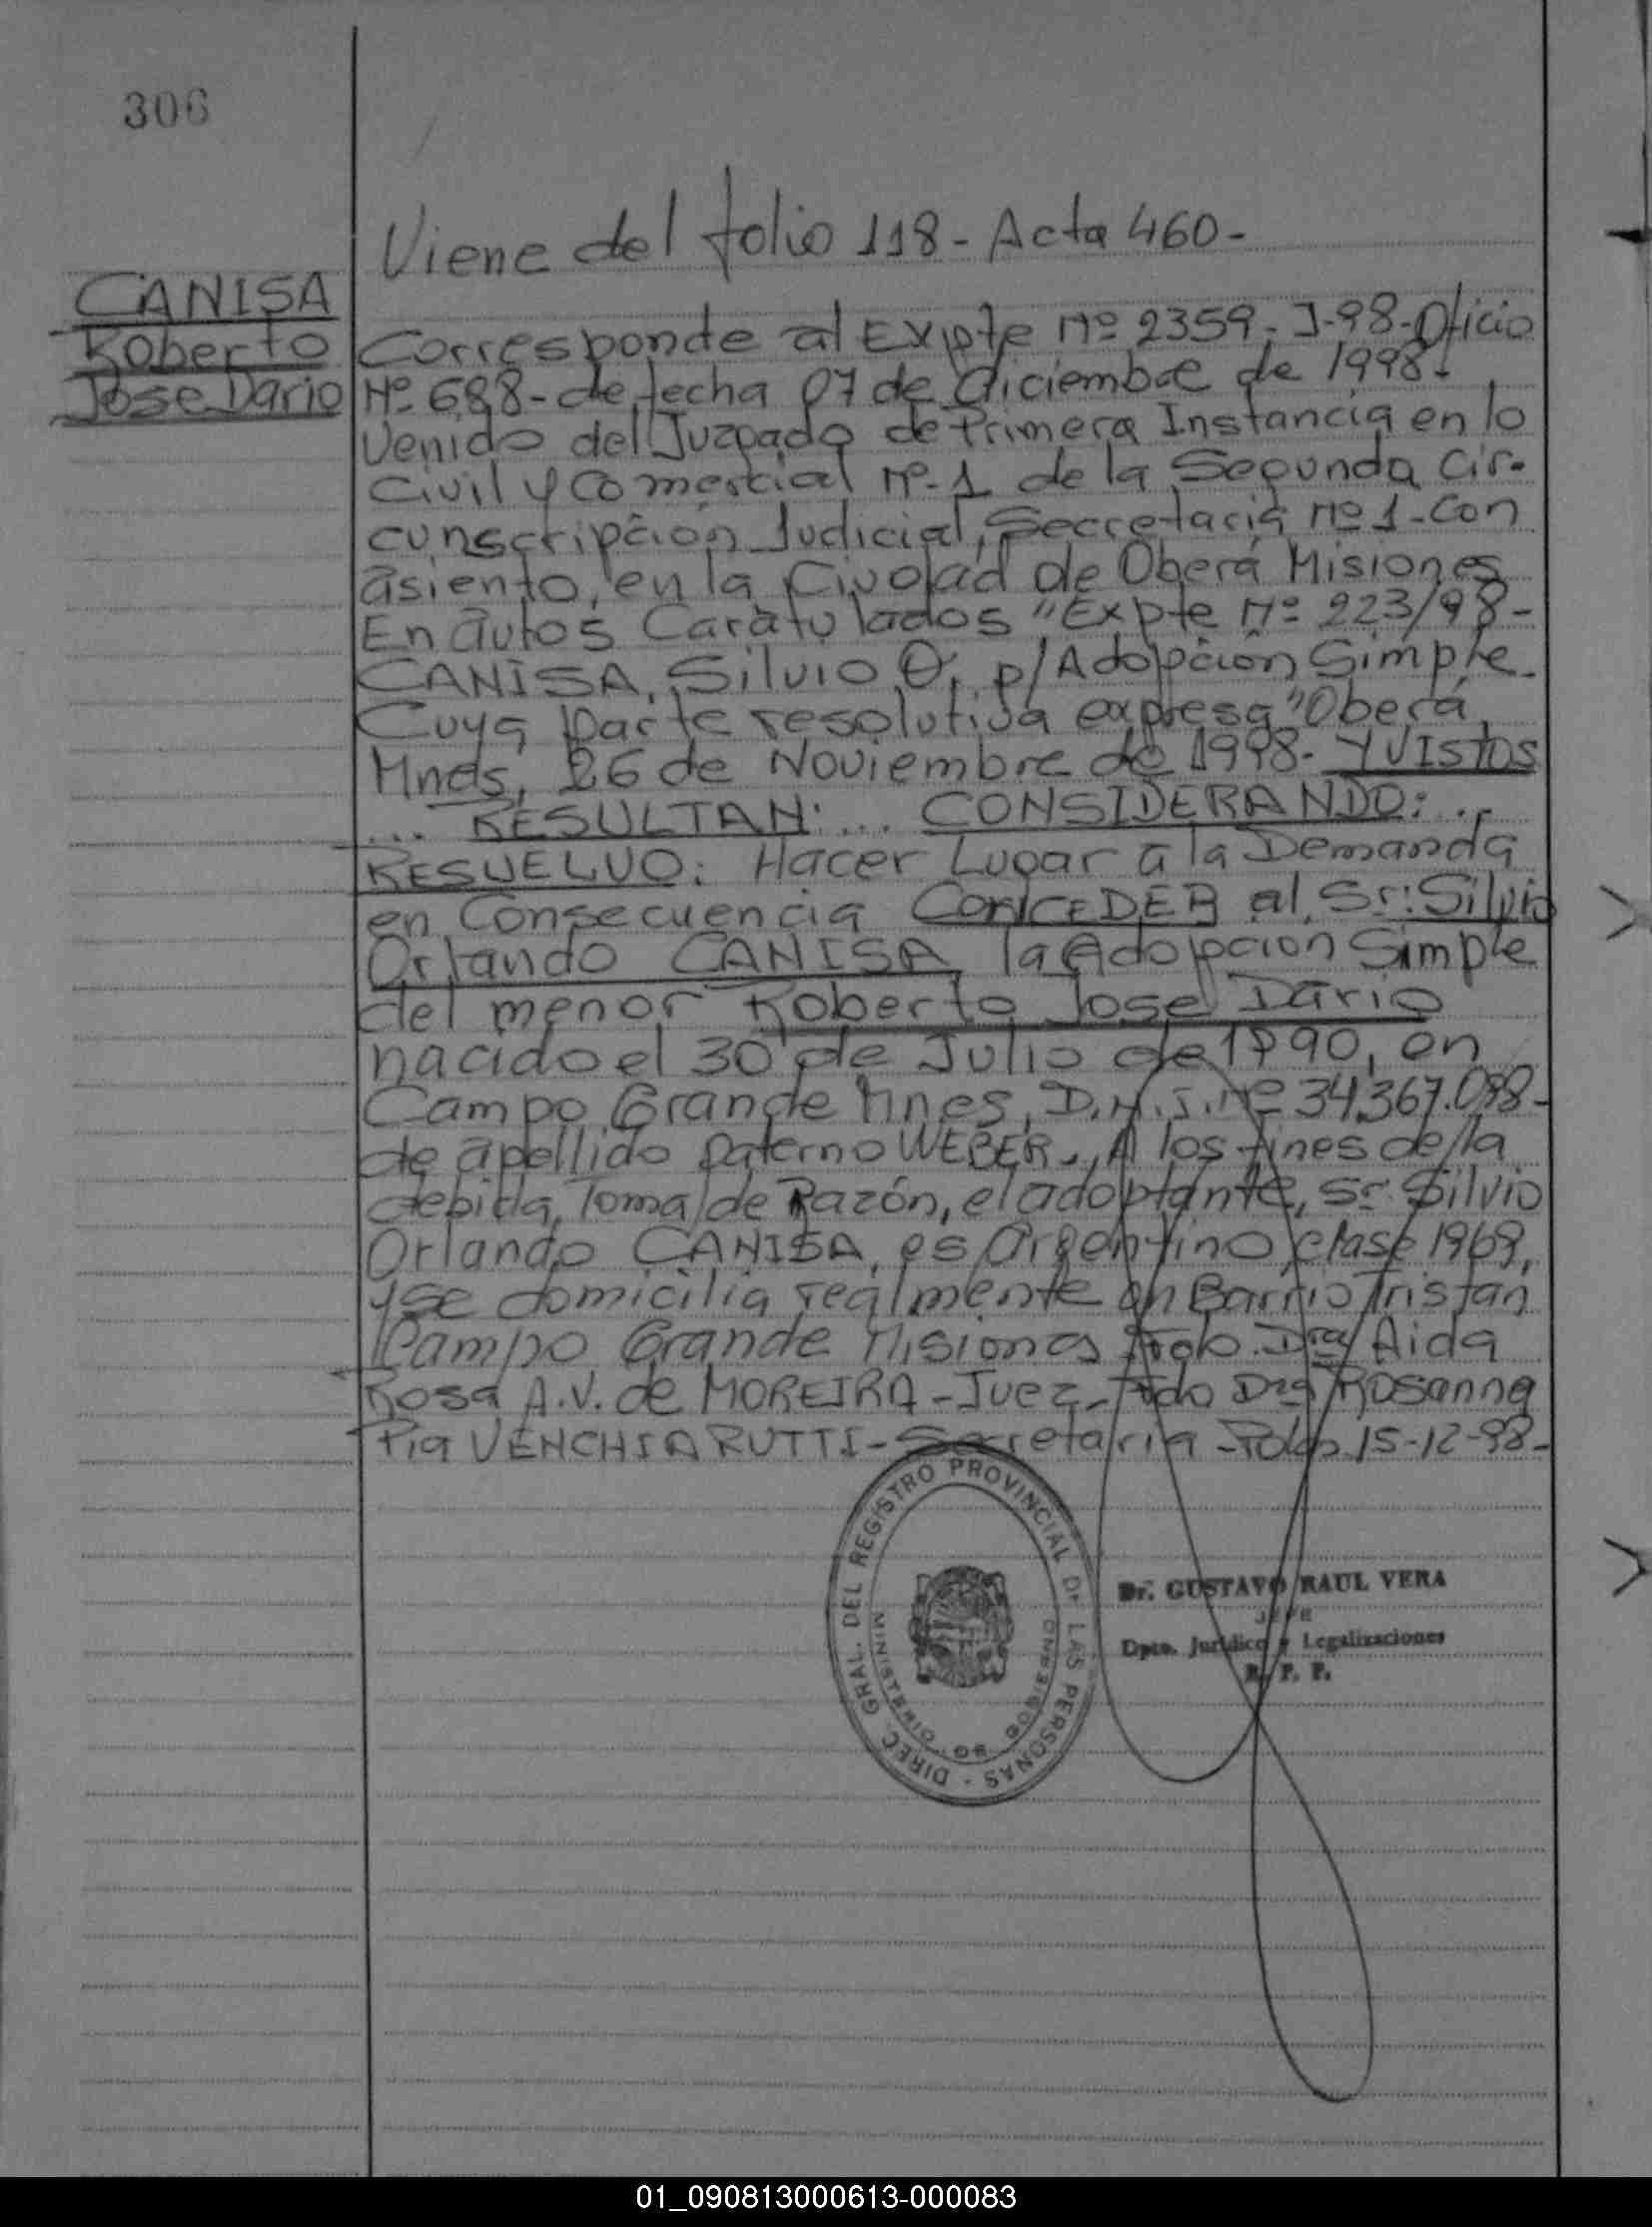 306
Viene del folio 118 - Acta 460-
CANISA
Roberto
Jose Dario
Corresponde al Expte Nº 2359- J-98- Oficio
Nº 688- de fecha 07 de diciembre de 1998-
Venido del Juzgado de Primera Instancia en lo
Civil y Comercial Nº 1 de la Segunda Cir-
cunscripción Judicial, Secretaria Nº 1- Con
asiento en la Ciudad de Oberá Misiones
En autos Caratulados "Expte Nº 223/98-
CANISA, Silvio O. p/ Adopción Simple-
Cuya parte resolutiva expresa "Oberá,
Mnes, 26 de Noviembre de 1998- Y VISTOS
... RESULTAN: ... CONSIDERANDO: ...
RESUELVO: Hacer Lugar a la Demanda
en Consecuencia CONCEDER al Sr: Silvio
Orlando CANISA, la Adopcion Simple
del menor Roberto Jose Dario
nacido el 30 de Julio de 1990, en
Campo Grande Mnes, D.N.I. Nº 34.367.088-
de apellido paterno WEBER-, A los fines de la
debida, Toma de Razón, el adoptante, Sr. Silvio
Orlando CANISA, es Argentino, clase 1969,
y se domicilia realmente en Barrio Tristan
Campo Grande Misiones Fdo. Dra Aida
Rosa A.V. de MOREIRA - Juez- Fdo Dra Rosanna
Pia VENCHIARUTTI - Secretaria - Pdas 15-12-98-
DIREC. GRAL. DEL REGISTRO PROVINCIAL DE LAS PERSONAS -
MINISTERIO DE GOBIERNO
Dr. GUSTAVO RAUL VERA
JEFE
Dpto. Jurídico y Legalizaciones
R. P. P.
01_090813000613-000083